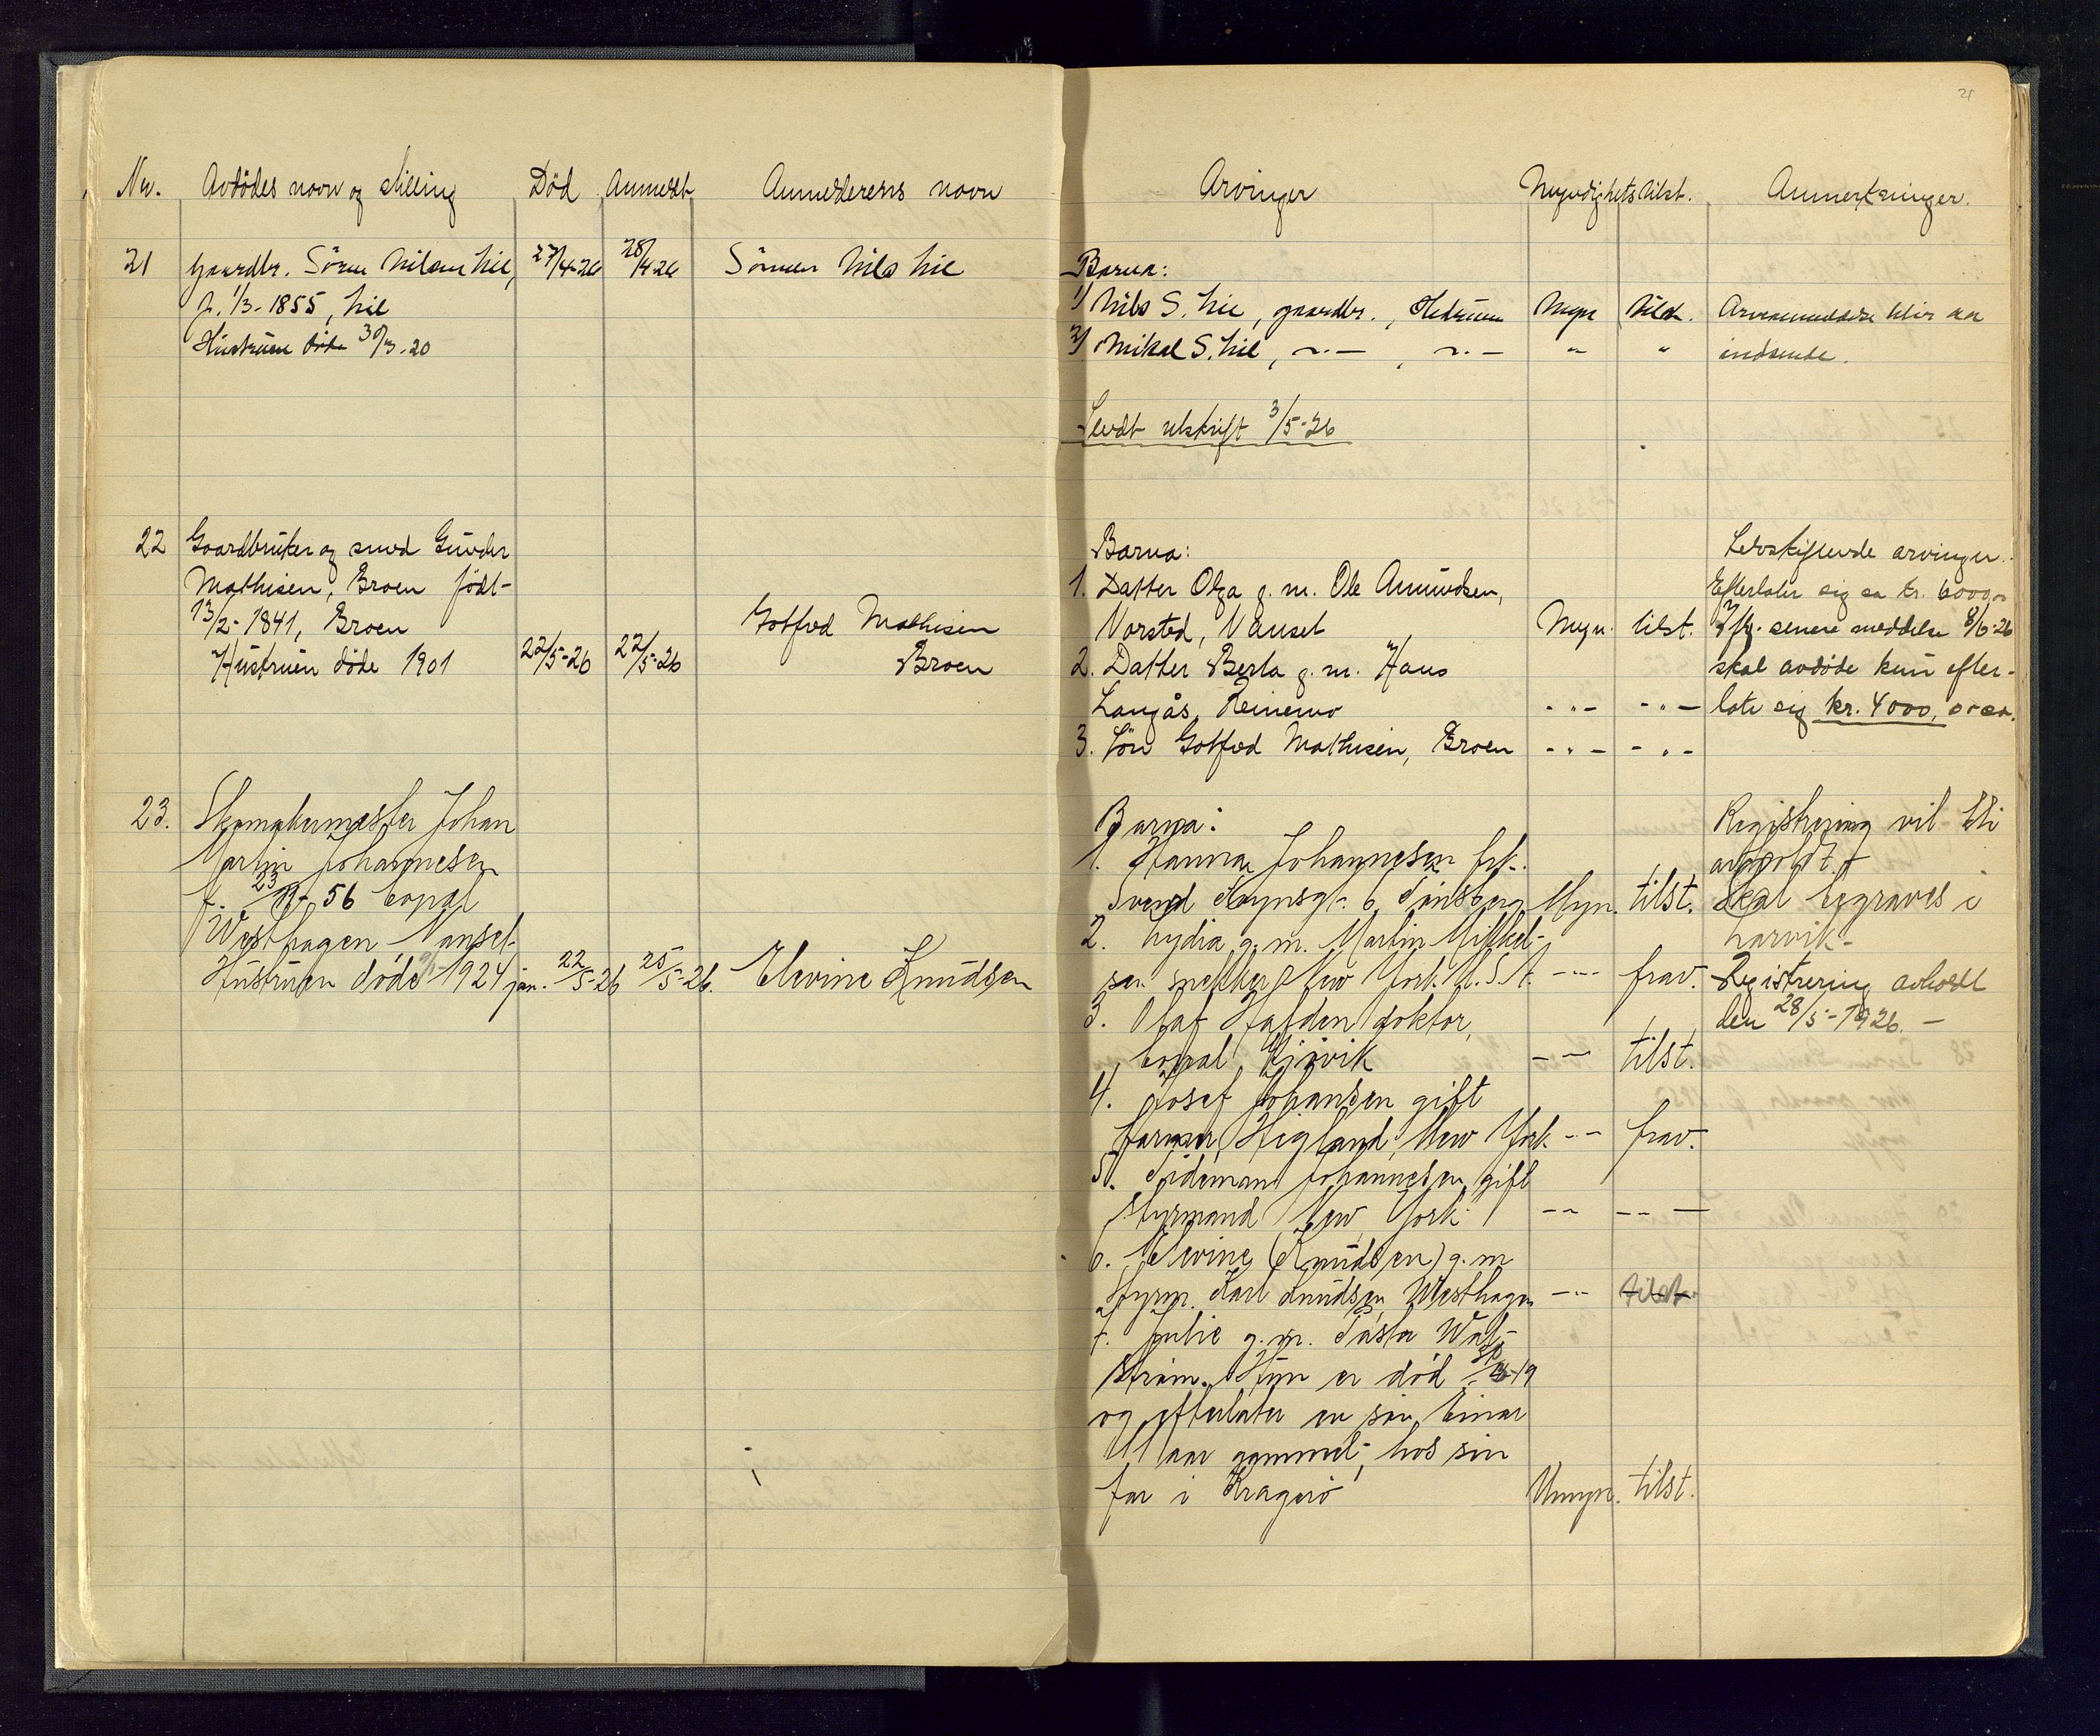 21
Nr. Avdödes navn og stilling Död Anmeldt Anmelderens navn
21 Gaardbr. Sören Nilsen Lie, 27/4-26 28/4-26 Sönnen Nils Lie
f. 1/3-1855, Lie
Hustruen döde 30/3-20
22 Gaardbruker og smed Gunder
Mathisen, Broen födt
13/2-1841, Broen Gotfred Mathisen
Hustruen döde 1901 22/5-26 22/5-26 Broen
23. Skomakermester Johan
Martin Johannesen
f. 23/ 56 bopæl
Westhagen Nanset
Hustruen döde 1924 jan. 22/5-26 25/5-26. Elevine Knudsen
Arvinger Myndighets tilst. Anmerkninger.
Barna:
1) Nils S. Lie, gaardbr., Hedrum Mynd. tilst. Arveanmeldelse blir aa
2) Mikal S. Lie, -"- , -"- " " indsende.
Sendt utskrift 3/5-26
Barna: Selvskiftende arvinger.
1. Datter Olga g. m. Ole Amundsen, Efterlater sig ca kr. 6000,00
Vorsted, Nanset Myn. tilst. Iflg. senere meddelse 8/6-26
2. Datter Berta g. m. Hans skal avdöde kun efter-
Langås, Reinemo -"- -"- late sig kr. 4000,00 ca.
3. Sön Gotfred Mathisen, Broen -"- -"-
Barna: Registrering vil bli
1. Hanna Johannesen frk. avholdt.
Svend Foynsgt. 6 Tönsberg Myn. tilst. Skal begraves i
2. Lydia g. m. Martin Mikkel- Larvik-
sen snekker New York. U.S.A. -"- frav. Registrering avholdt
3. Olaf Halfden doktor, den 28/5-1926. -
bopæl Gjövik -"- tilst.
4. Josef Johansen gift
farmer, Higland, New York. -"- frav.
5. Tideman Johannesen gift
styrmand New York -"- -"-
6. Elevine (Knudsen) g. m
Styrm. Karl Knudsen, Westhagen -"- tilst.
7. Julie g. m. Gösta Wal-
ström. Hun er död -19
og efterlater en sön Einar
11 aar gammel, hos sin
far i Kragerö Umyn. tilst.